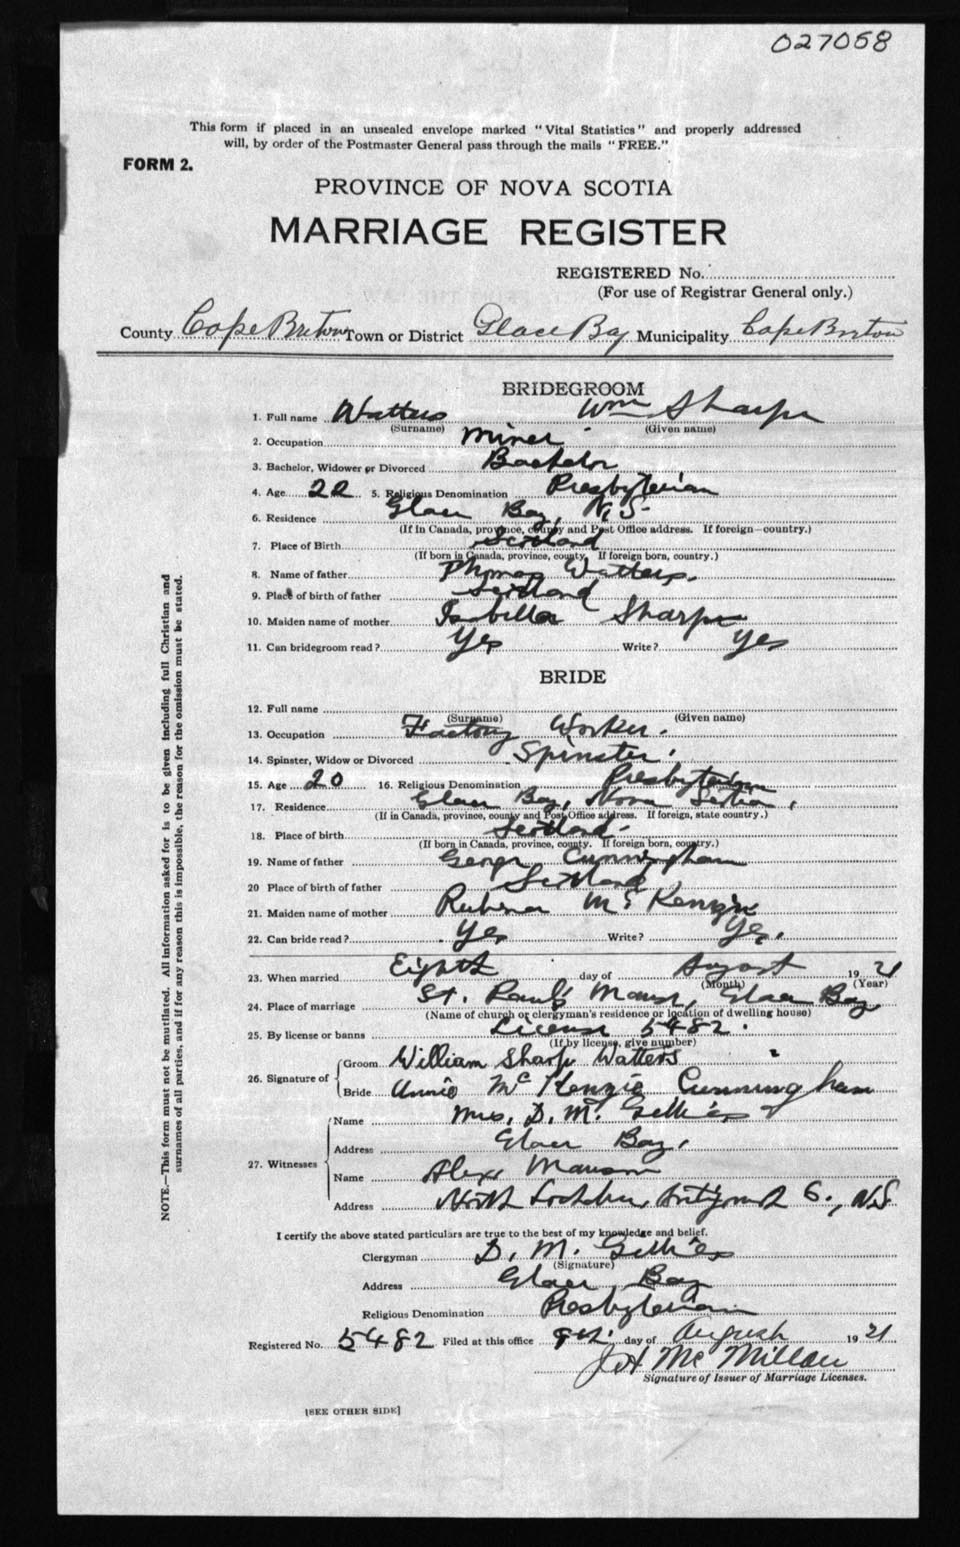 027058
This form if placed in an unsealed envelope marked "Vital Statistics" and properly addressed
will, by order of the Postmaster General pass through the mails "FREE."
FORM 2.
PROVINCE OF NOVA SCOTIA
MARRIAGE REGISTER
REGISTERED No.
(For use of Registrar General only.)
County Cape Breton Town or District Glace Bay Municipality Cape Breton
BRIDEGROOM
1. Full name Watters Wm Sharpe
(Surname) (Given name)
2. Occupation Miner
3. Bachelor, Widower or Divorced Bachelor
4. Age 22 5. Religious Denomination Presbyterian
6. Residence Glace Bay, N.S.
(If in Canada, province, county and Post Office address. If foreign—country.)
7. Place of Birth Scotland
(If born in Canada, province, county. If foreign born, country.)
8. Name of father Watters.
9. Place of birth of father Scotland
10. Maiden name of mother Isabella Sharpe
11. Can bridegroom read? Yes Write? Yes
BRIDE
12. Full name
(Surname) (Given name)
13. Occupation Factory Worker.
14. Spinster, Widow or Divorced Spinster.
15. Age 20 16. Religious Denomination Presbyterian
17. Residence Glace Bay, Nova Scotia,
(If in Canada, province, county and Post Office address. If foreign, state country.)
18. Place of birth Scotland.
(If born in Canada, province, county. If foreign born, country.)
19. Name of father George Cunningham
20 Place of birth of father Scotland
21. Maiden name of mother Rubina McKenzie
22. Can bride read? Yes Write? Yes.
23. When married Eighth day of August 1921
(Month) (Year)
24. Place of marriage St. Paul's Manse, Glace Bay
(Name of church or clergyman's residence or location of dwelling house)
25. By license or banns License 5482.
(If by license, give number)
26. Signature of Groom William Sharp Watters
Bride Annie McKenzie Cunningham
27. Witnesses Name Mrs. D. M. Gillies
Address Glace Bay.
Name Alex Manson
Address North Lochaber, Antigonish Co., N.S.
I certify the above stated particulars are true to the best of my knowledge and belief.
Clergyman D. M. Gillies
(Signature)
Address Glace Bay
Religious Denomination Presbyterian
Registered No. 5482 Filed at this office 9th day of August 1921
McMillan
Signature of Issuer of Marriage Licenses.
[SEE OTHER SIDE]
NOTE.—This form must not be mutilated. All information asked for is to be given including full Christian and
surnames of all parties, and if for any reason this is impossible, the reason for the omission must be stated.